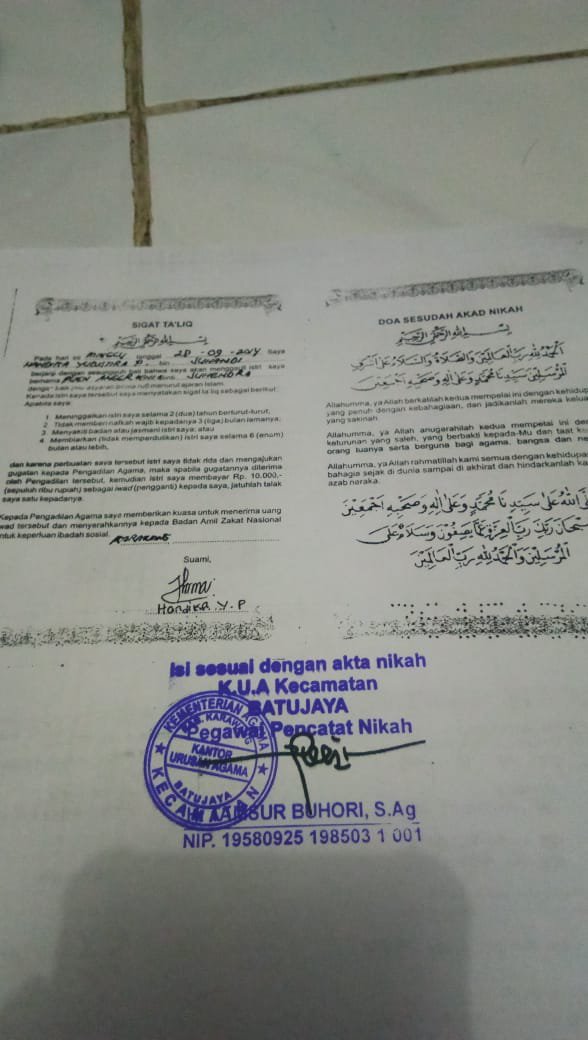 SIGAT TA'LIQ
بِسْمِ اللهِ الرَّحْمٰنِ الرَّحِيْمِ
Pada hari ini MINGGU tanggal 28-09-2014 Saya
bin JUNAEDI
berjanji dengan sesungguh hati bahwa saya akan menggauli istri saya
bernama binti SUHENDRA
dengan baik (mu'asyarah bil ma'ruf) menurut ajaran Islam.
Kepada istri saya tersebut saya menyatakan sigat ta'liq sebagai berikut:
Apabila saya:
1. Meninggalkan istri saya selama 2 (dua) tahun berturut-turut,
2. Tidak memberi nafkah wajib kepadanya 3 (tiga) bulan lamanya;
3. Menyakiti badan atau jasmani istri saya; atau
4. Membiarkan (tidak memperdulikan) istri saya selama 6 (enam)
bulan atau lebih,
dan karena perbuatan saya tersebut istri saya tidak rida dan mengajukan
gugatan kepada Pengadilan Agama, maka apabila gugatannya diterima
oleh Pengadilan tersebut, kemudian istri saya membayar Rp. 10.000,-
(sepuluh ribu rupiah) sebagai iwad (pengganti) kepada saya, jatuhlah talak
saya satu kepadanya.
Kepada Pengadilan Agama saya memberikan kuasa untuk menerima uang
iwad tersebut dan menyerahkannya kepada Badan Amil Zakat Nasional
untuk keperluan ibadah sosial. KARAWANG
Suami,
Handika Y. P
DOA SESUDAH AKAD NIKAH
بِسْمِ اللهِ الرَّحْمٰنِ الرَّحِيْمِ
الْحَمْدُ لِلّٰهِ رَبِّ الْعَالَمِيْنَ وَالصَّلَاةُ وَالسَّلَامُ عَلَى اَشْرَفِ
الْمُرْسَلِيْنَ سَيِّدِنَا مُحَمَّدٍ وَعَلَى اٰلِهِ وَصَحْبِهِ اَجْمَعِيْنَ
Allahumma, ya Allah berkatilah kedua mempelai ini dengan kehidup
yang penuh dengan kebahagiaan, dan jadikanlah mereka kelua
yang sakinah.
Allahumma, ya Allah anugerahilah kedua mempelai ini de
keturunan yang saleh, yang berbakti kepada-Mu dan taat ke
orang tuanya serta berguna bagi agama, bangsa dan ne
Allahumma, ya Allah rahmatilah kami semua dengan kehidupa
bahagia sejak di dunia sampai di akhirat dan hindarkanlah ka
azab neraka.
اللهُ عَلَى سَيِّدِنَا مُحَمَّدٍ وَعَلَى اٰلِهِ وَصَحْبِهِ اَجْمَعِيْنَ
سُبْحَانَ رَبِّكَ رَبِّ الْعِزَّةِ عَمَّا يَصِفُوْنَ وَسَلَامٌ عَلَى
الْمُرْسَلِيْنَ وَالْحَمْدُ لِلّٰهِ رَبِّ الْعَالَمِيْنَ
Isi sesuai dengan akta nikah
K.U.A Kecamatan
BATUJAYA
Pegawai Pencatat Nikah
KEMENTERIAN AGAMA
KAB. KARAWANG
KANTOR
URUSAN AGAMA
BATUJAYA
KECAMATAN
SUR BUHORI, S.Ag
NIP. 19580925 198503 1 001